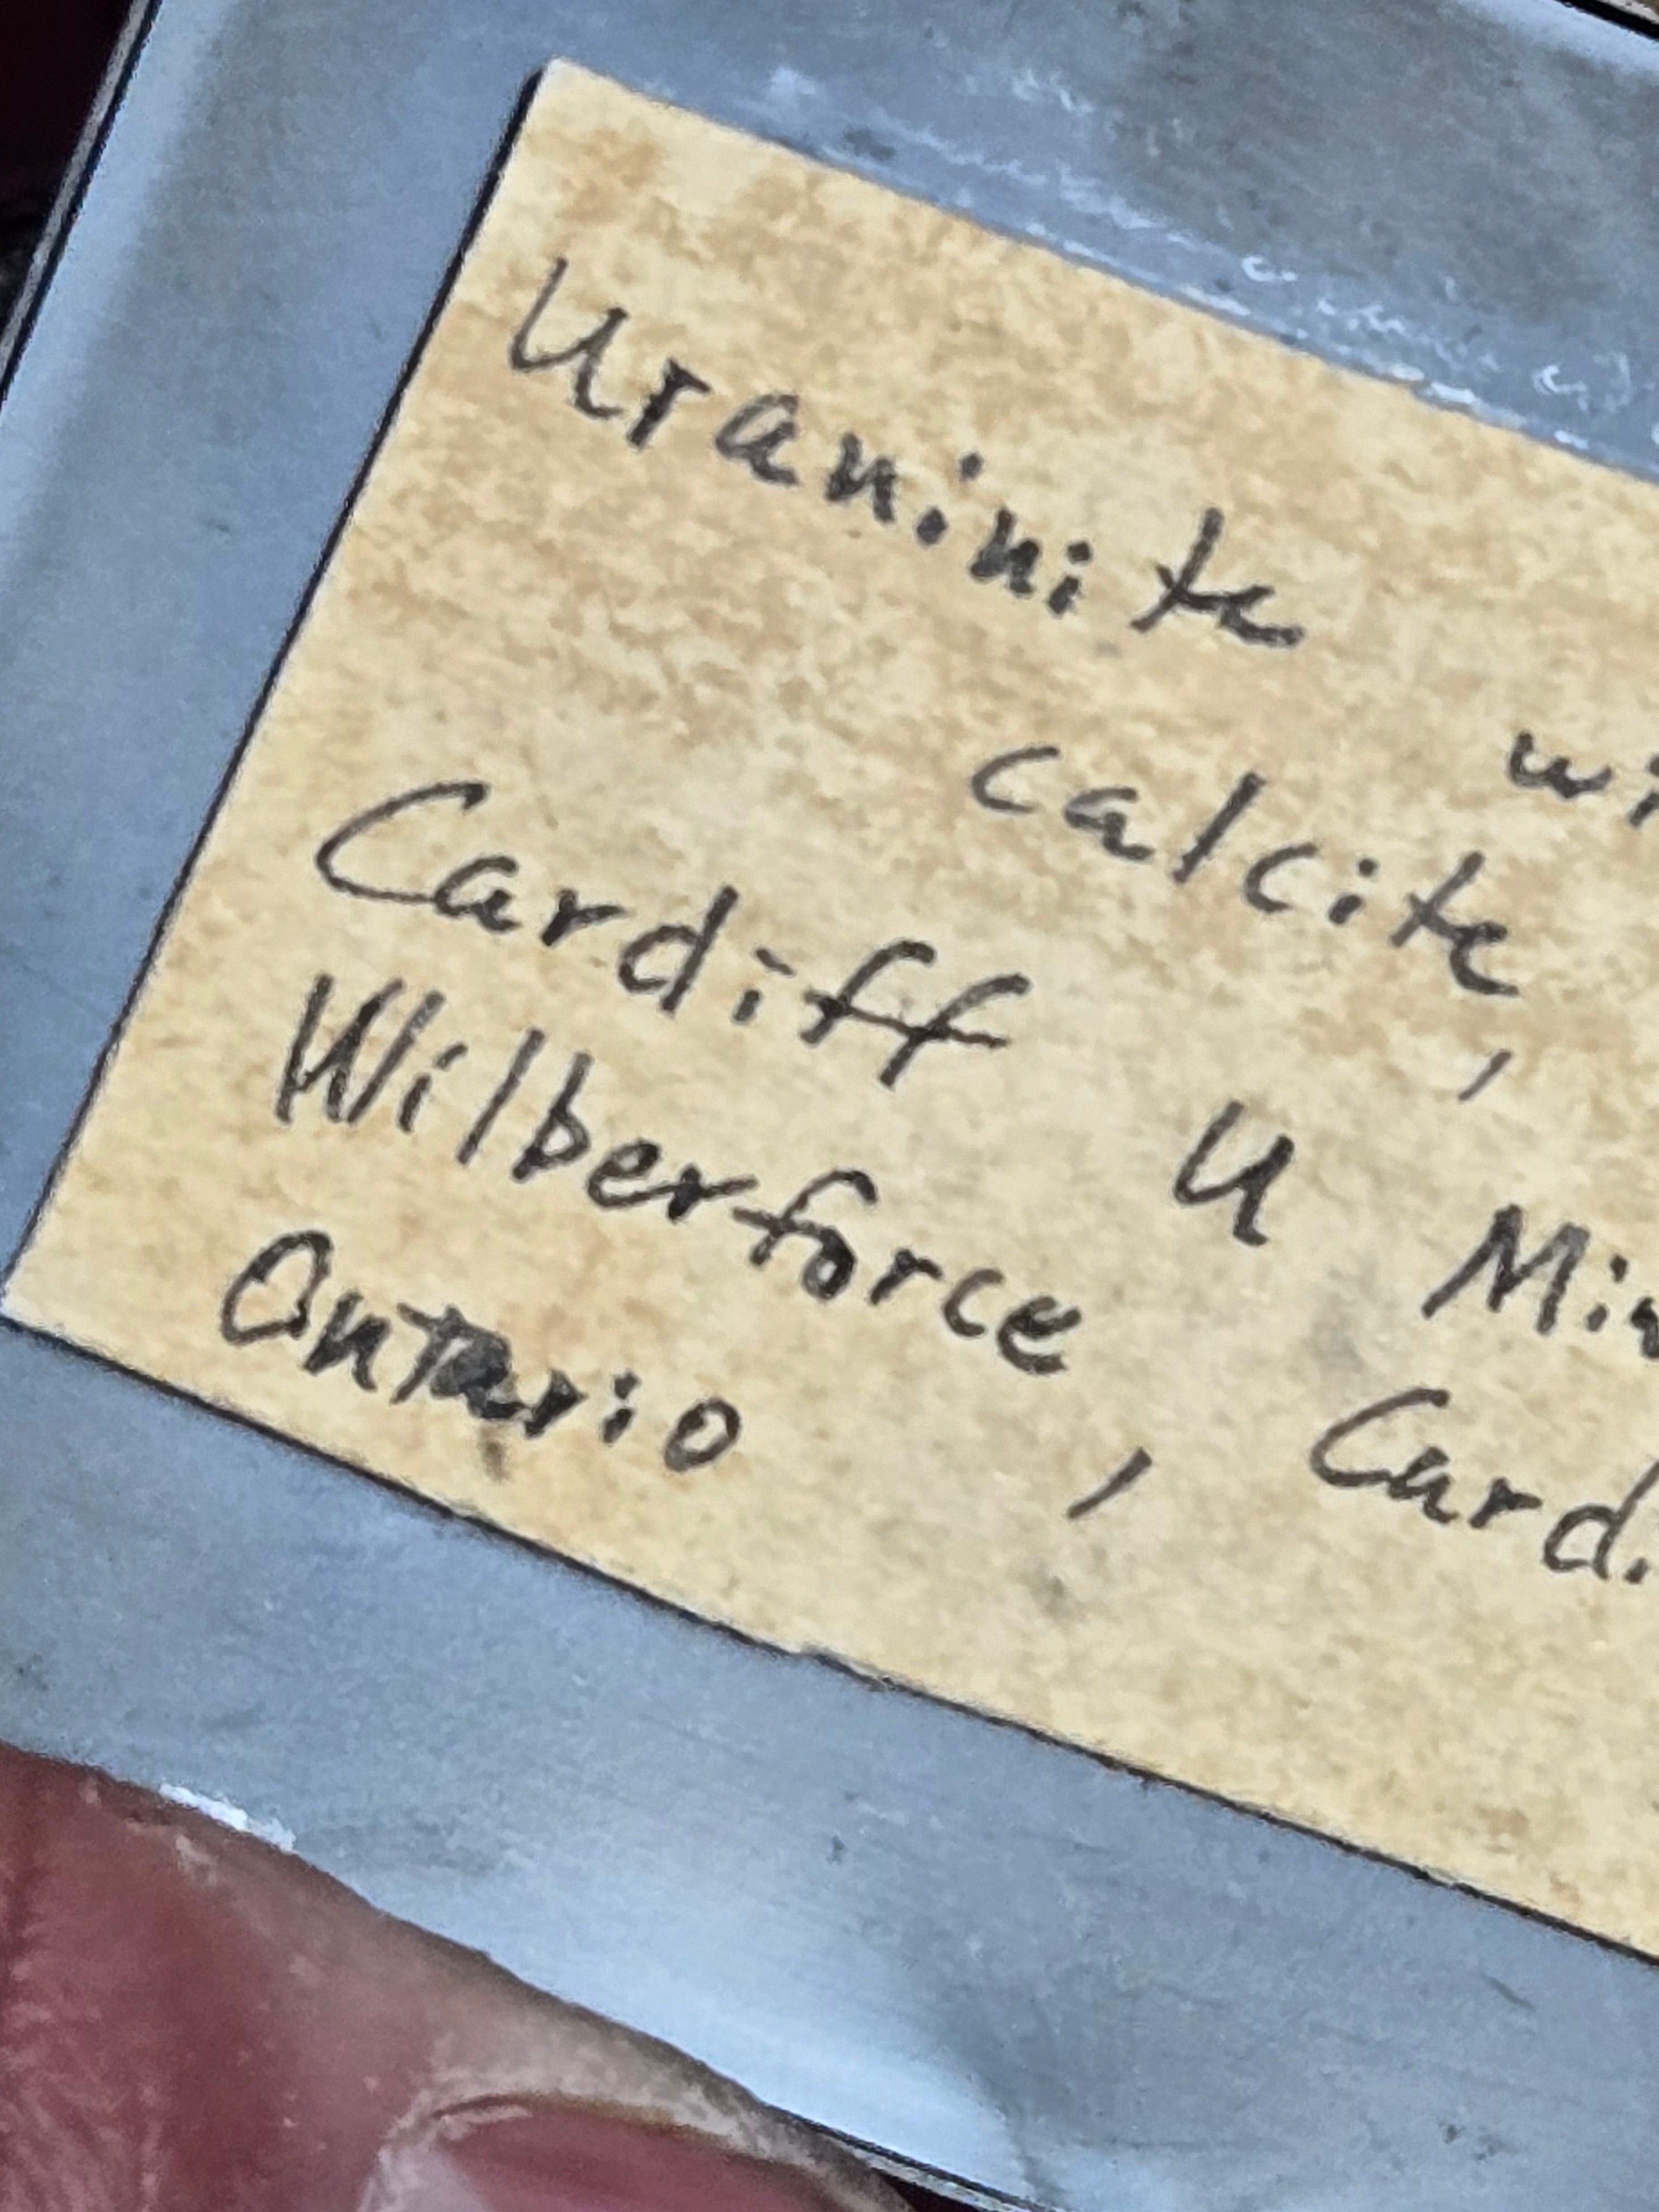 Uraninite wi
calcite,
Cardiff U Min
Wilberforce, Cardi
Ontario